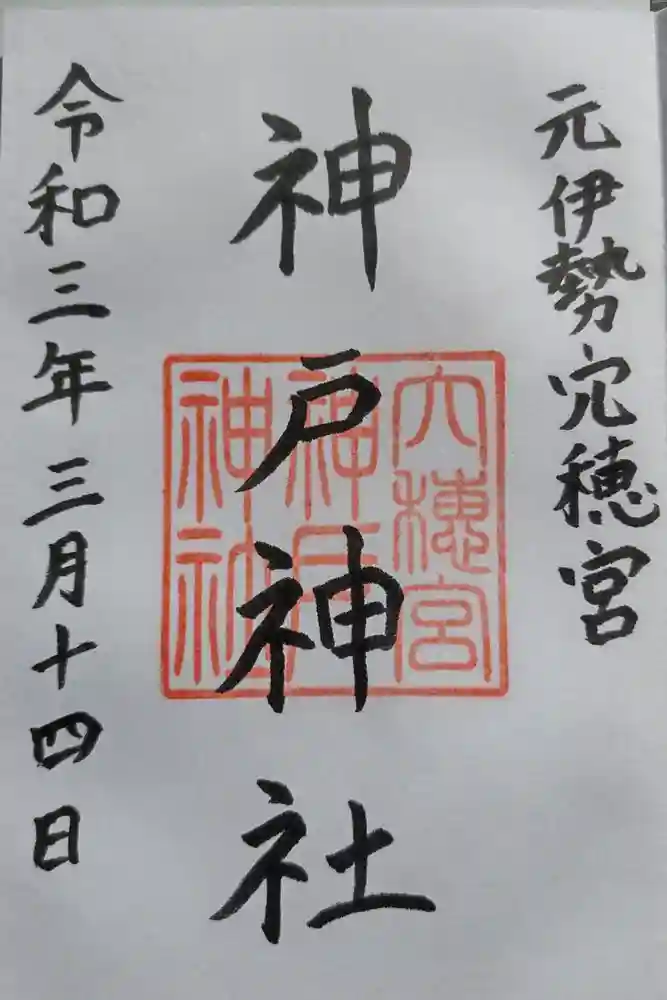 元伊勢穴穂宮
神戸神社
令和三年三月十四日
穴穂宮
神戸
神社